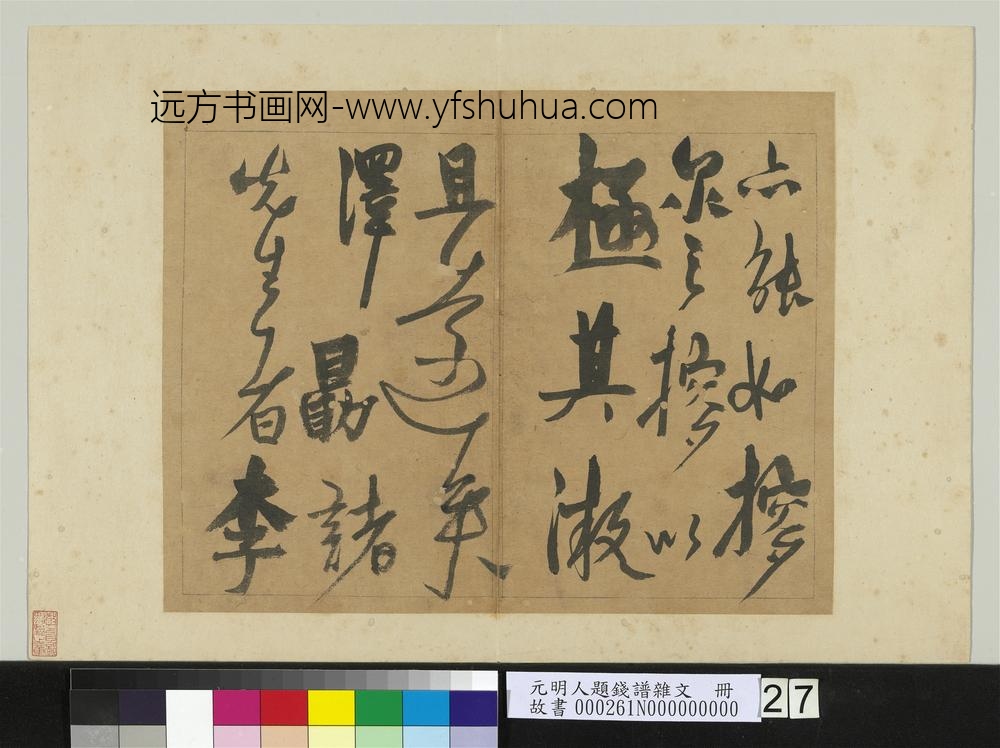 远方书画网-www.yfshuhua.com
亦能
之以
極其淑
且遠矣
澤勗諸
先生者李
元明人題錢譜雜文　冊
故書 000261N000000000
27